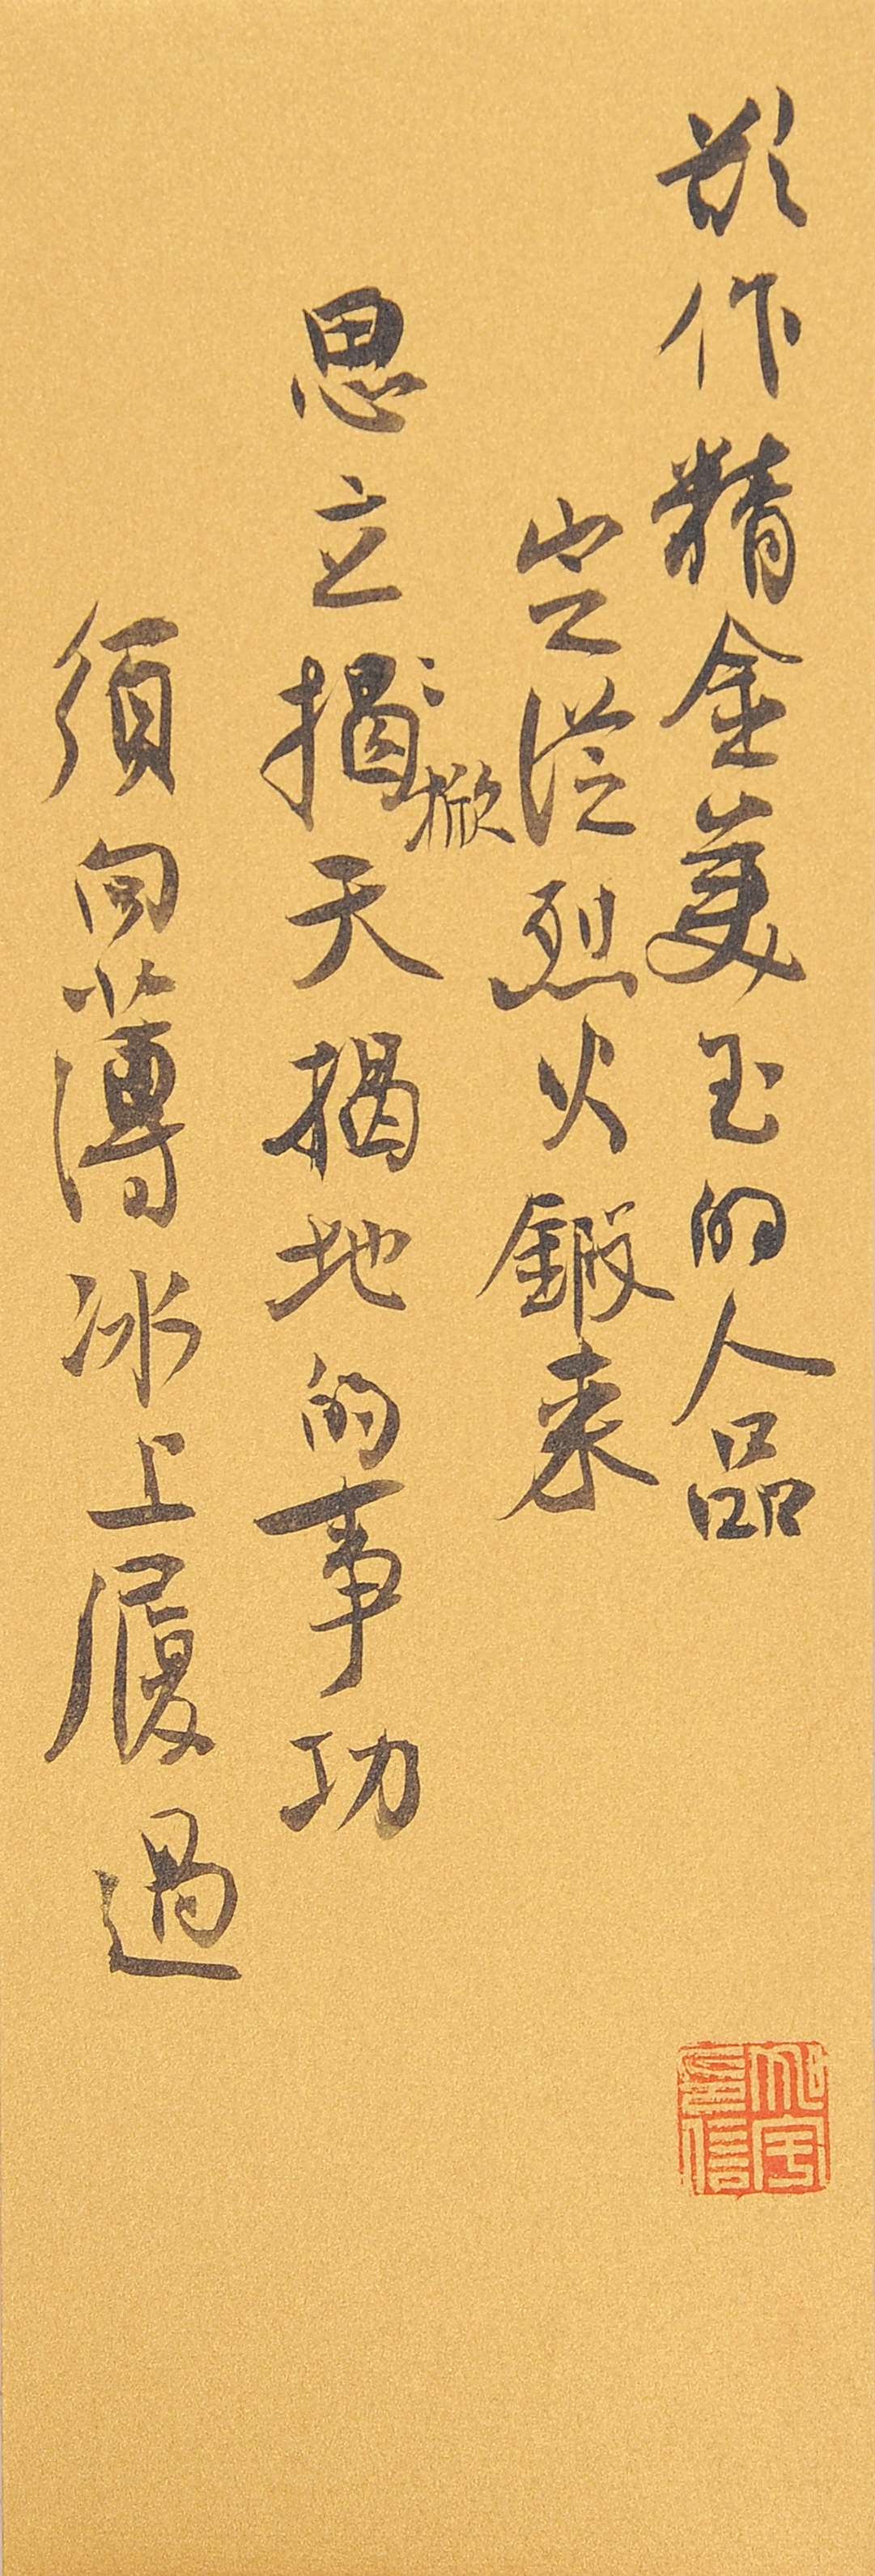 欲作精金美玉的人品
定從烈火鍛来
思立揭掀天揭地的事功
須向薄冰上履過